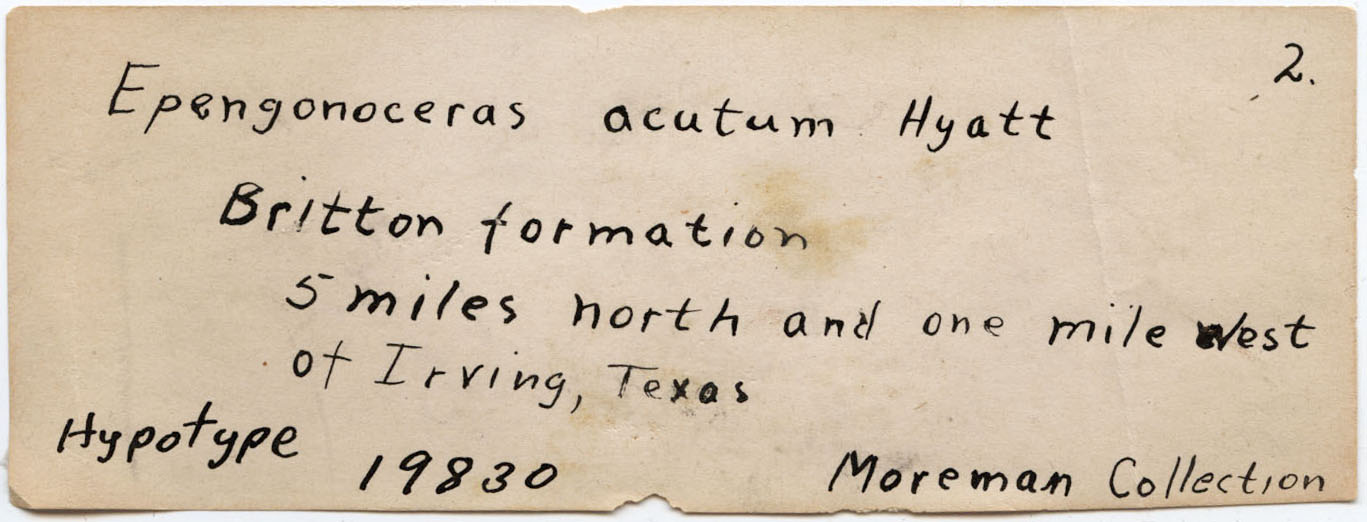 2.
Epengonoceras acutum Hyatt
Britton formation
5 miles north and one mile west
of Irving, Texas
Hypotype
19830
Moreman Collection